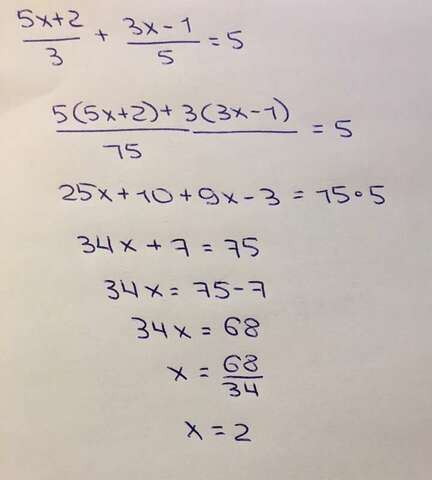 (5x+2)/3 + (3x-1)/5 = 5
(5(5x+2)+3(3x-1))/15 = 5
25x+10+9x-3 = 15·5
34x+7 = 75
34x = 75-7
34x = 68
x = 68/34
x = 2